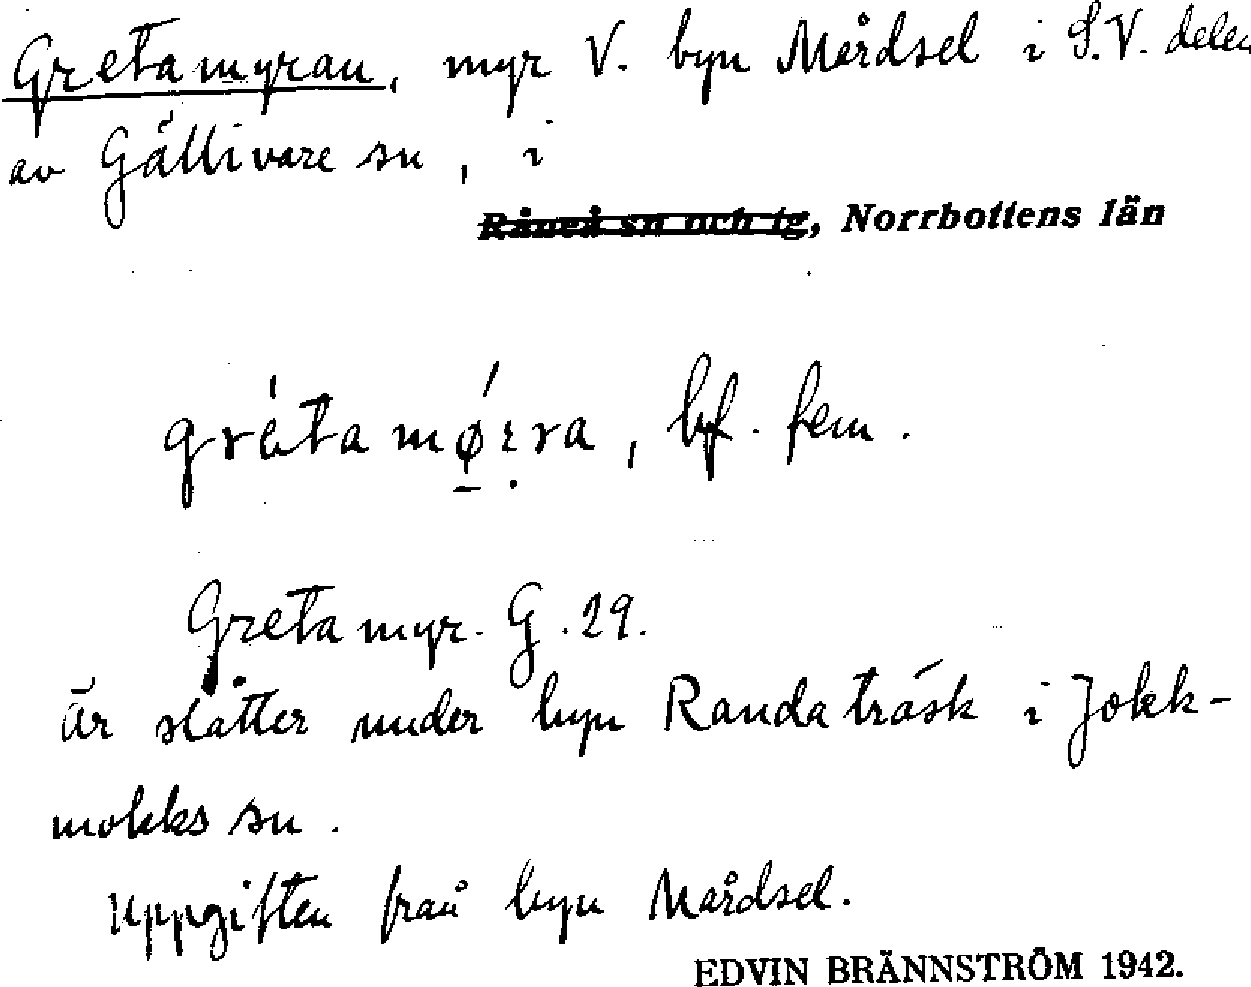 Gretamyran, myr V. byn Mårdsel i S.V. delen
av Gällivare sn, i
Råneå sn och tg, Norrbottens län
grètamǿrra, bf. fem.
Gretamyr. G. 29.
är slåtter under byn Randaträsk i Jokk-
mokks sn.
Uppgiften från byn Mårdsel.
EDVIN BRÄNNSTRÖM 1942.